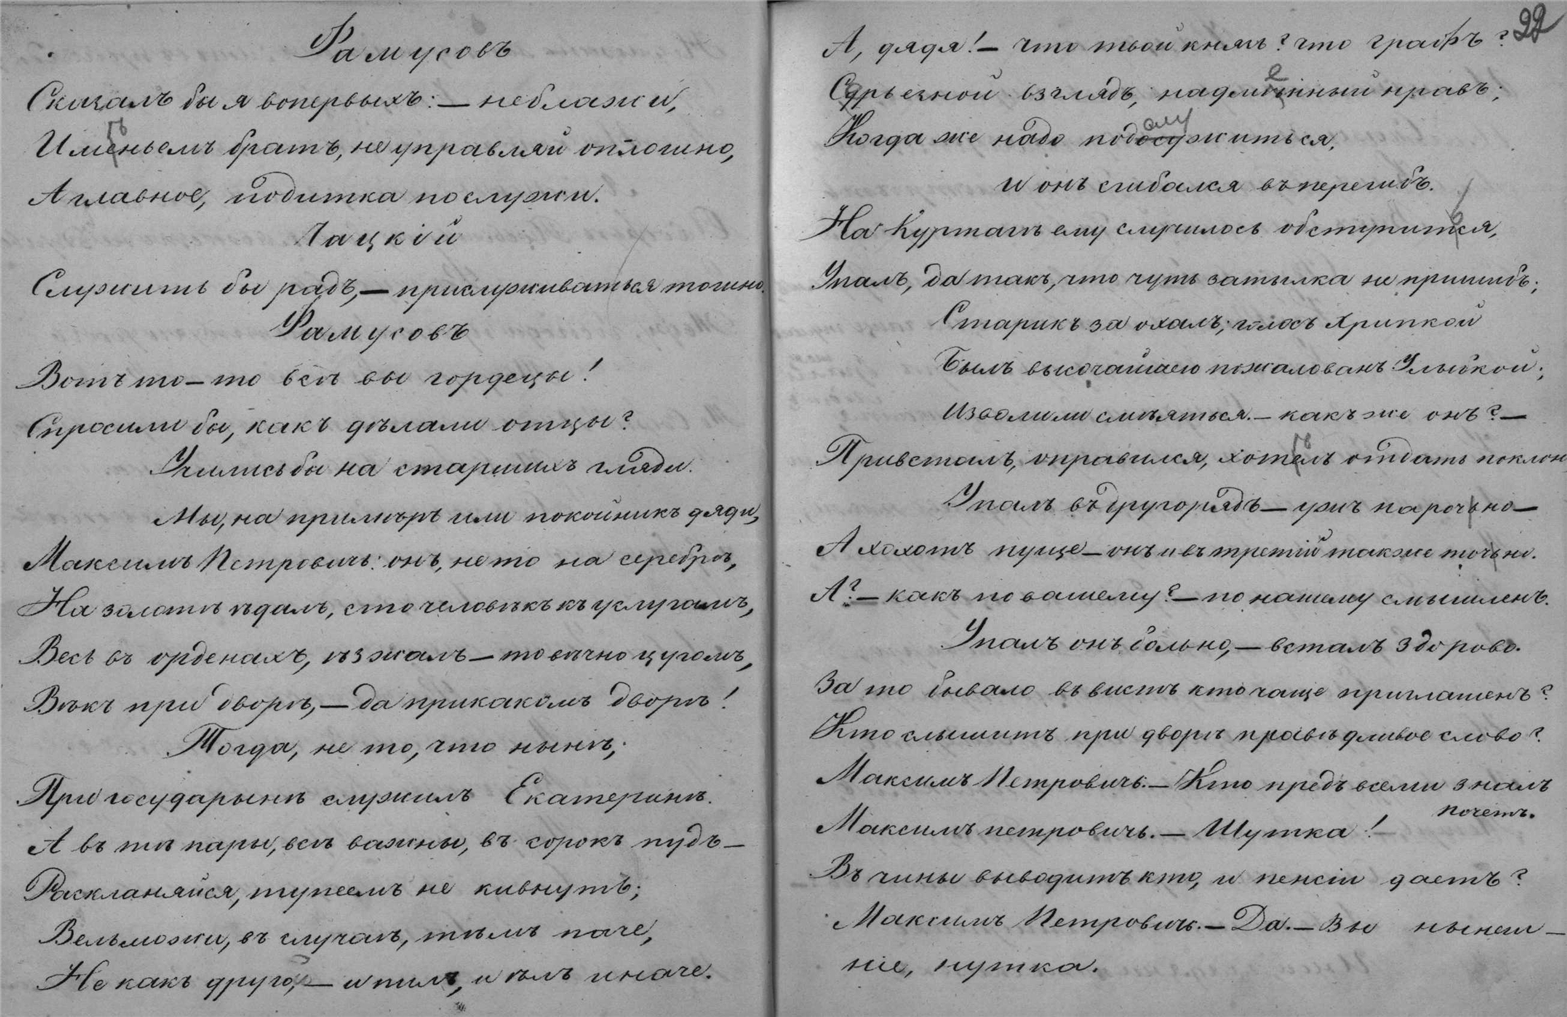 Фамусовъ
Сказалъ бы я вопервыхъ: — не блажи,
Имѣньемъ братъ, не управляй оплошно,
А главное, подитка послужи.
Чацкій
Служить бы радъ, — прислуживаться тошно.
Фамусовъ
Вотъ то-то всѣ вы гордецы!
Спросили бы, какъ дѣлали отцы?
Учились бы на старшихъ глядя.
Мы, на примѣръ или покойникъ дядя,
Максимъ Петровичь: онъ, не то на серебрѣ,
На золотѣ ѣдалъ, сто человѣкъ къ услугамъ,
Весь въ орденахъ, ѣзжалъ — то вѣчно цугомъ,
Вѣкъ при дворѣ, — да при какомъ дворѣ!
Тогда, не то, что нынѣ,
При государынѣ служилъ Екатеринѣ.
А въ тѣ пары, всѣ важны, въ сорокъ пудъ —
Раскланяйся, тупеемъ не кивнутъ;
Вельможи, въ случаѣ, тѣмъ паче,
Не какъ другой, — и пилъ, и ѣлъ иначе.
22
А, дядя! — что твой князь? что графъ?
Сурьезной взглядъ, надменный нравъ;
Когда же надо подслужиться,
И онъ сгибался въ перегибъ.
На Куртагѣ ему случилось обступиться,
Упалъ, да такъ, что чуть затылка не пришибъ;
Старикъ за охалъ; голосъ хрипкой
Былъ высочайшею пожалованъ Улыбкой;
Изволили смѣяться. — какъ же онъ? —
Привсталъ, оправился, хотѣлъ отдать поклонъ
Упалъ въ другорядъ — ужъ нарочно —
А хохотъ пуще — онъ и въ третій также точно.
А? — какъ по вашему? — по нашему смышленъ.
Упалъ онъ больно, — всталъ здорово.
За то бывало въ вистъ кто чаще приглашенъ?
Кто слышитъ при дворѣ привѣтливое слово?
Максимъ Петровичь. — Кто предъ всеми зналъ
почетъ.
Максимъ петровичь. — Шутка!
Въ чины выводитъ кто, и пенсіи даетъ?
Максимъ Петровичь. — Да. — Вы нынеш-
ніе, нутка.